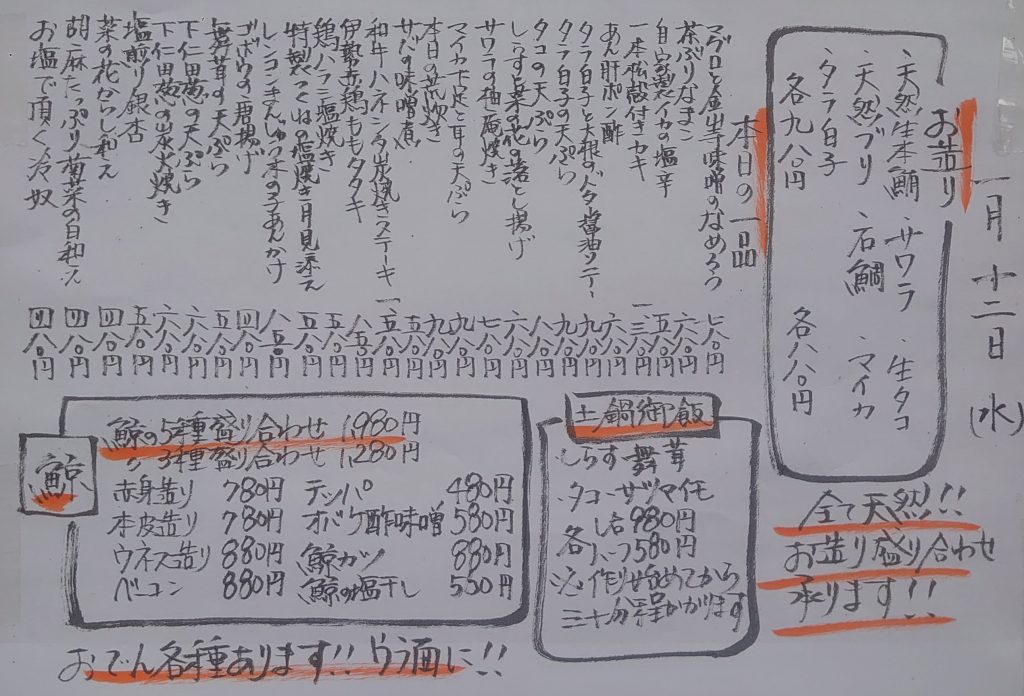 一月十二日(水)
お造り
・天然生本鮪 ・サワラ ・生タコ
・天然ブリ ・石鯛 ・マイカ
・タラ白子
各九八〇円 各八八〇円
全て天然!!
お造り盛り合わせ
承ります!!
本日の一品
マグロと金山寺味噌のなめろう 七八〇円
茶ぶりなまこ 六八〇円
自家製イカの塩辛 五八〇円
一本松殻付きカキ
あん肝ポン酢 六八〇円
タラ白子と大根のバター醤油ソテー 九八〇円
タラ白子の天ぷら 九八〇円
タコの天ぷら 八八〇円
しらすと菜の花の落とし揚げ 六八〇円
サワラの柚庵焼き 七八〇円
マイカ下足と耳の天ぷら
本日の荒炊き 九八〇円
サバの味噌煮 五八〇円
和牛ハネシタ炭焼きステーキ
伊勢赤鶏ももタタキ 八五〇円
鶏ハラミ塩焼き 五八〇円
特製つくねの塩焼き月見添え 五八〇円
レンコンまんじゅうキノコあんかけ 八五〇円
ゴボウの唐揚げ 四八〇円
舞茸の天ぷら 五八〇円
下仁田葱の天ぷら 六八〇円
下仁田葱の炭火焼き 六八〇円
塩煎り銀杏 五八〇円
菜の花からし和え 四八〇円
胡麻たっぷり菊菜の白和え 四八〇円
お塩で頂く冷奴 四八〇円
土鍋御飯
・しらす舞茸
・タコ・サツマイモ
各 しお980円
ハーフ580円
※作り始めてから
三十分程かかります
鯨
鯨の5種盛り合わせ 1,980円
〃3種盛り合わせ 1,280円
赤身造り 780円 テッパ 480円
本皮造り 780円 オバケ酢味噌 580円
ウネス造り 880円 鯨カツ 880円
ベーコン 880円 鯨の塩干し 550円
おでん各種あります!!ウラ面に!!